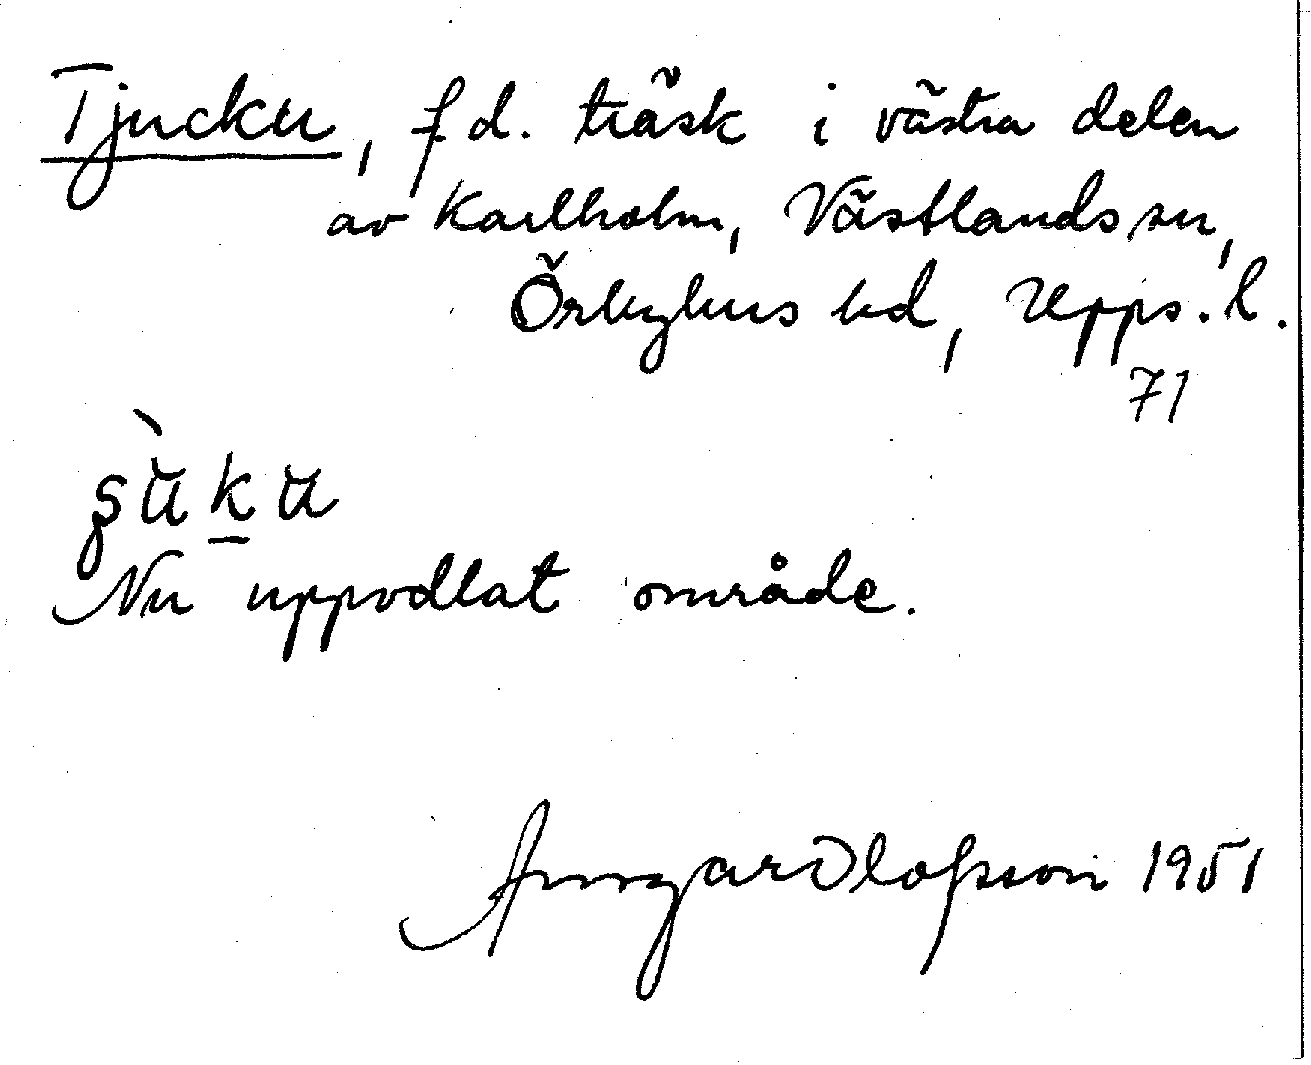 Tjucku, f d. träsk i västra delen
av Karlholm, Västlands sn,
Örbyhus hd, Upps. l.
71
Nu uppodlat område.
Olofsson 1951